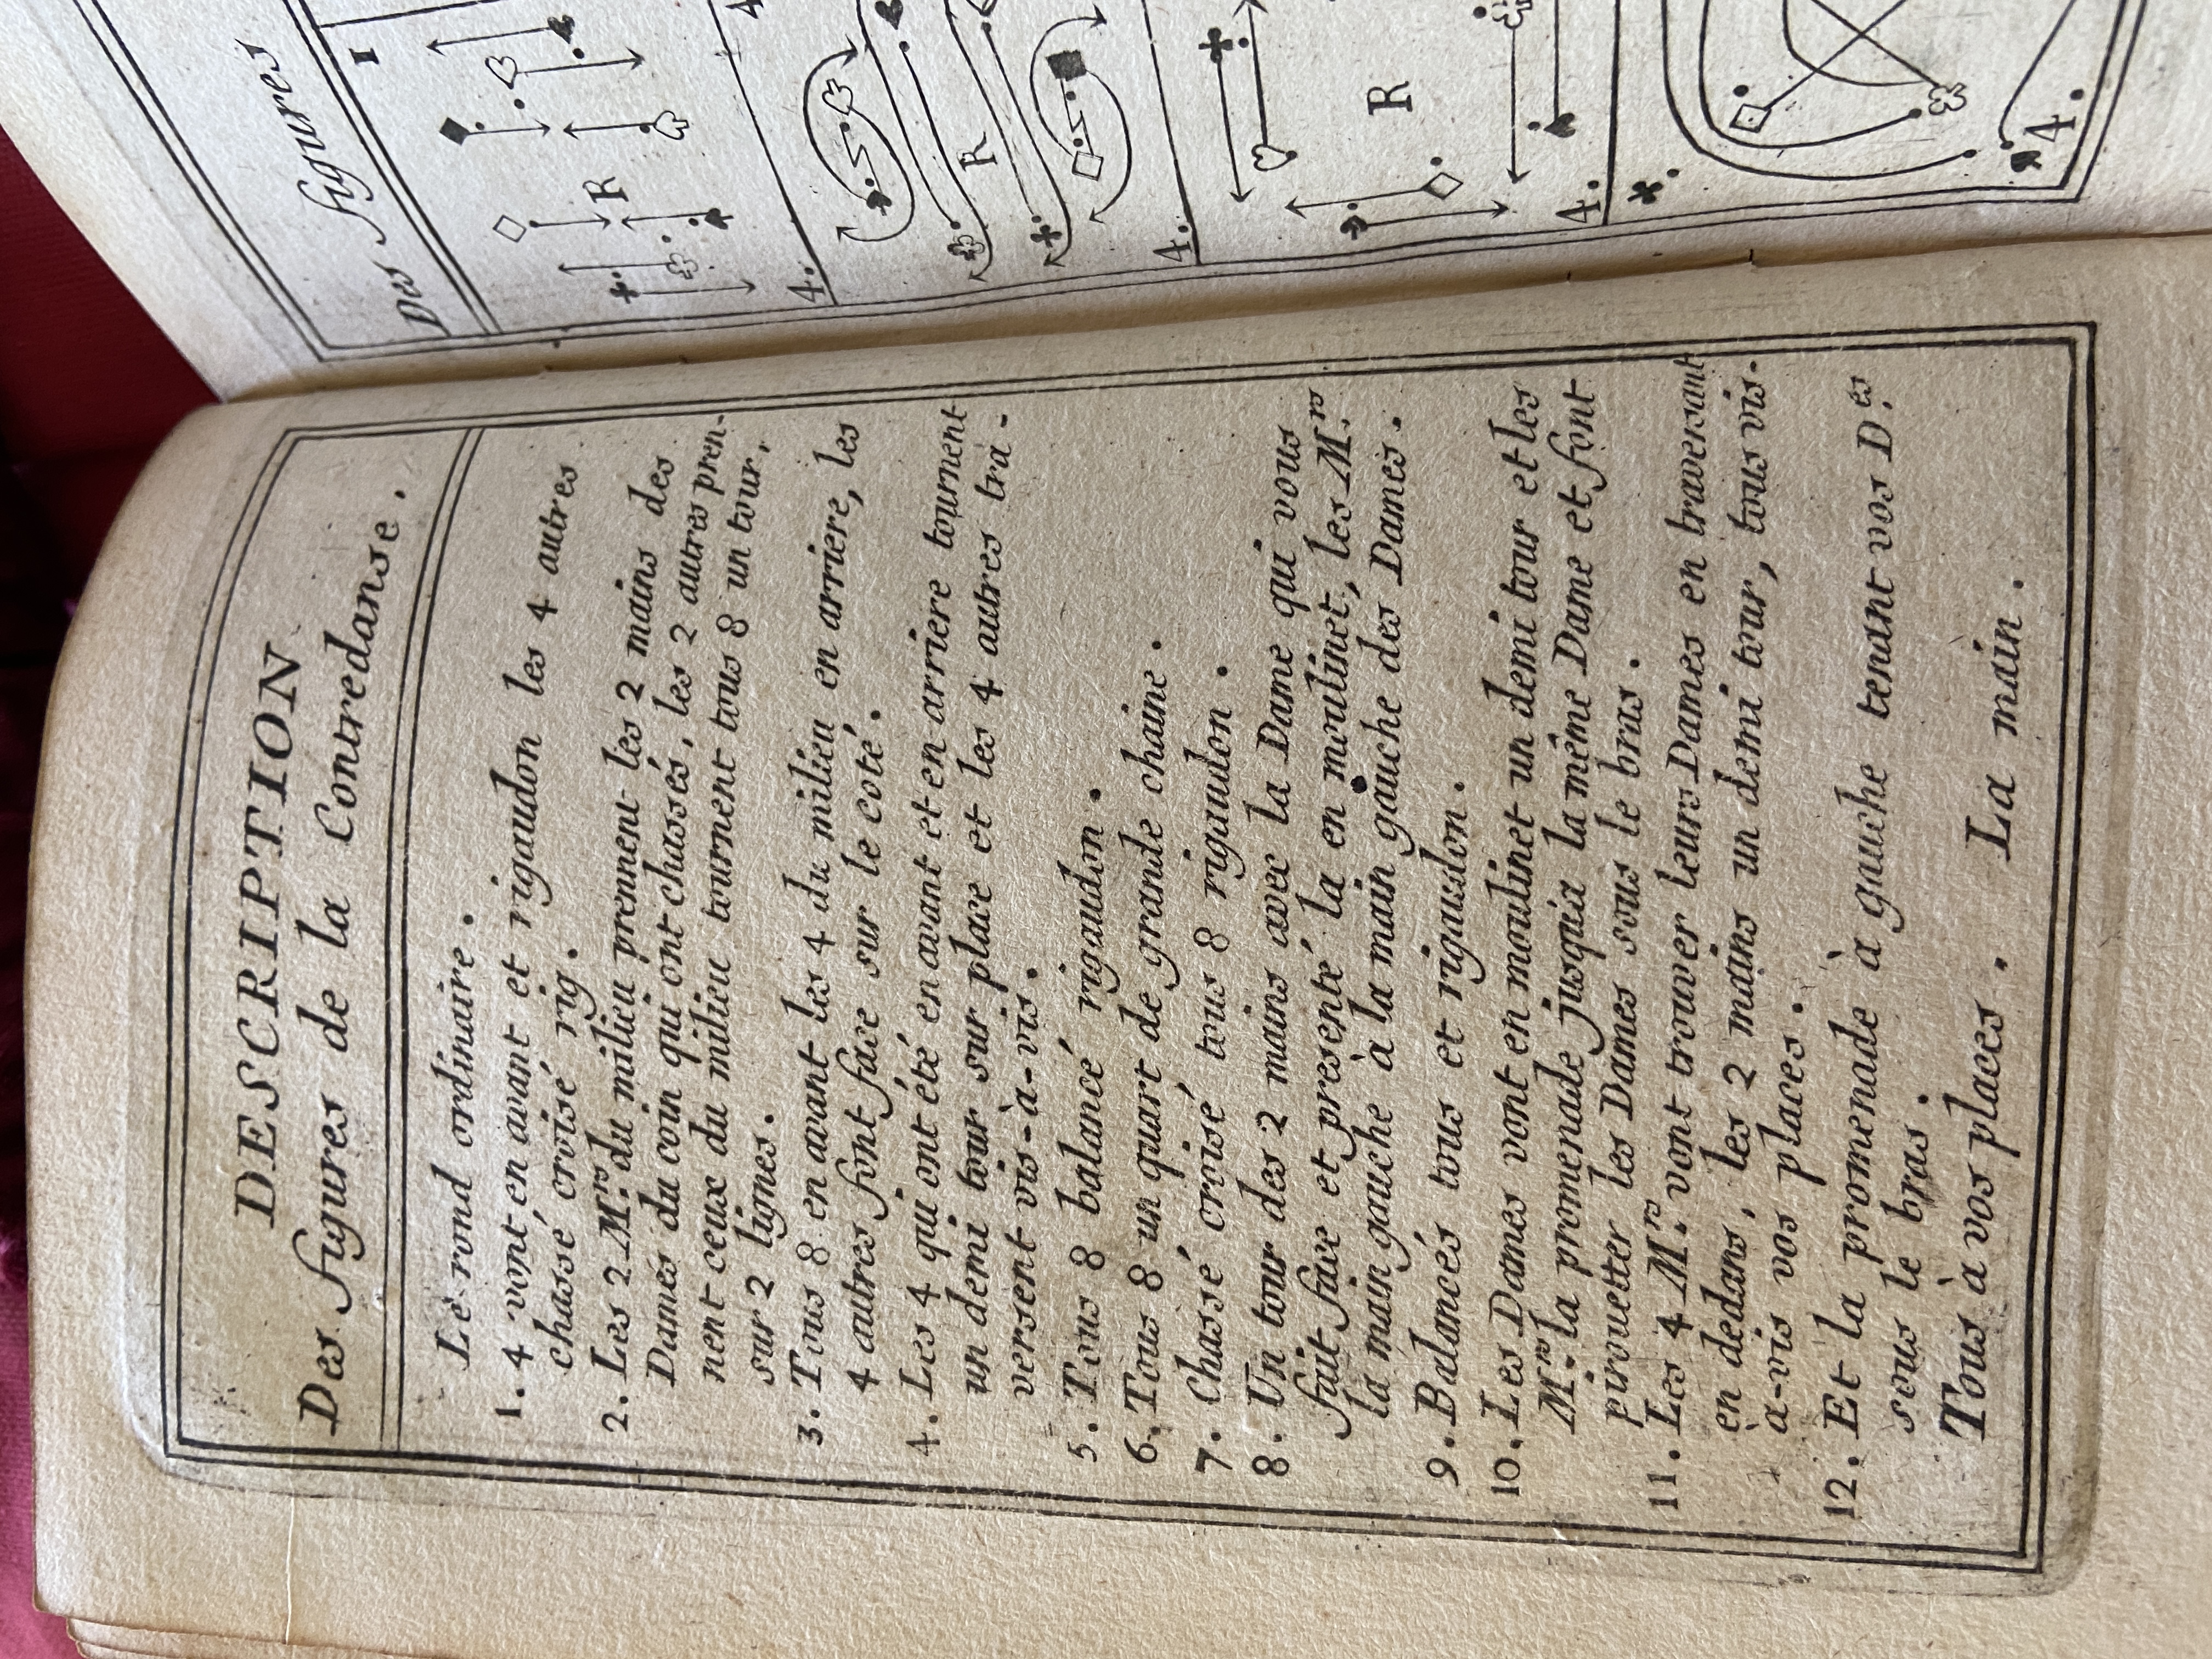 DESCRIPTION
Des figures de la Contredanse.
Le rond ordinaire.
1. 4 vont en avant et rigaudon les 4 autres
chassé croisé rig.
2. Les 2 M.rs du milieu prennent les 2 mains des
Dames du coin qui ont chassés, les 2 autres pren-
nent ceux du milieu tournent tous 8 un tour,
sur 2 lignes.
3. Tous 8 en avant les 4 du milieu en arriere, les
4 autres font face sur le coté.
4. Les 4 qui ont été en avant et en arriere tournent
un demi tour sur place et les 4 autres tra-
versent vis-à-vis.
5. Tous 8 balancé rigaudon.
6. Tous 8 un quart de grande chaine.
7. Chassé croisé tous 8 rigaudon.
8. Un tour des 2 mains avec la Dame qui vous
fait face et presenté la en moulinet, les M.rs
la main gauche à la main gauche des Dames.
9. Balancés tous et rigaudon.
10. Les Dames vont en moulinet un demi tour et les
M.rs la promenade jusqu'à la même Dame et font
pirouetter les Dames sous le bras.
11. Les 4 M.rs vont trouver leurs Dames en traversant
en dedans, les 2 mains un demi tour, tous vis-
à-vis vos places.
12. Et la promenade à gauche tenant vos D.es
sous le bras.
Tous à vos places. La main.
Des figures
1
R
4.
4
R
4.
R
4.
4.